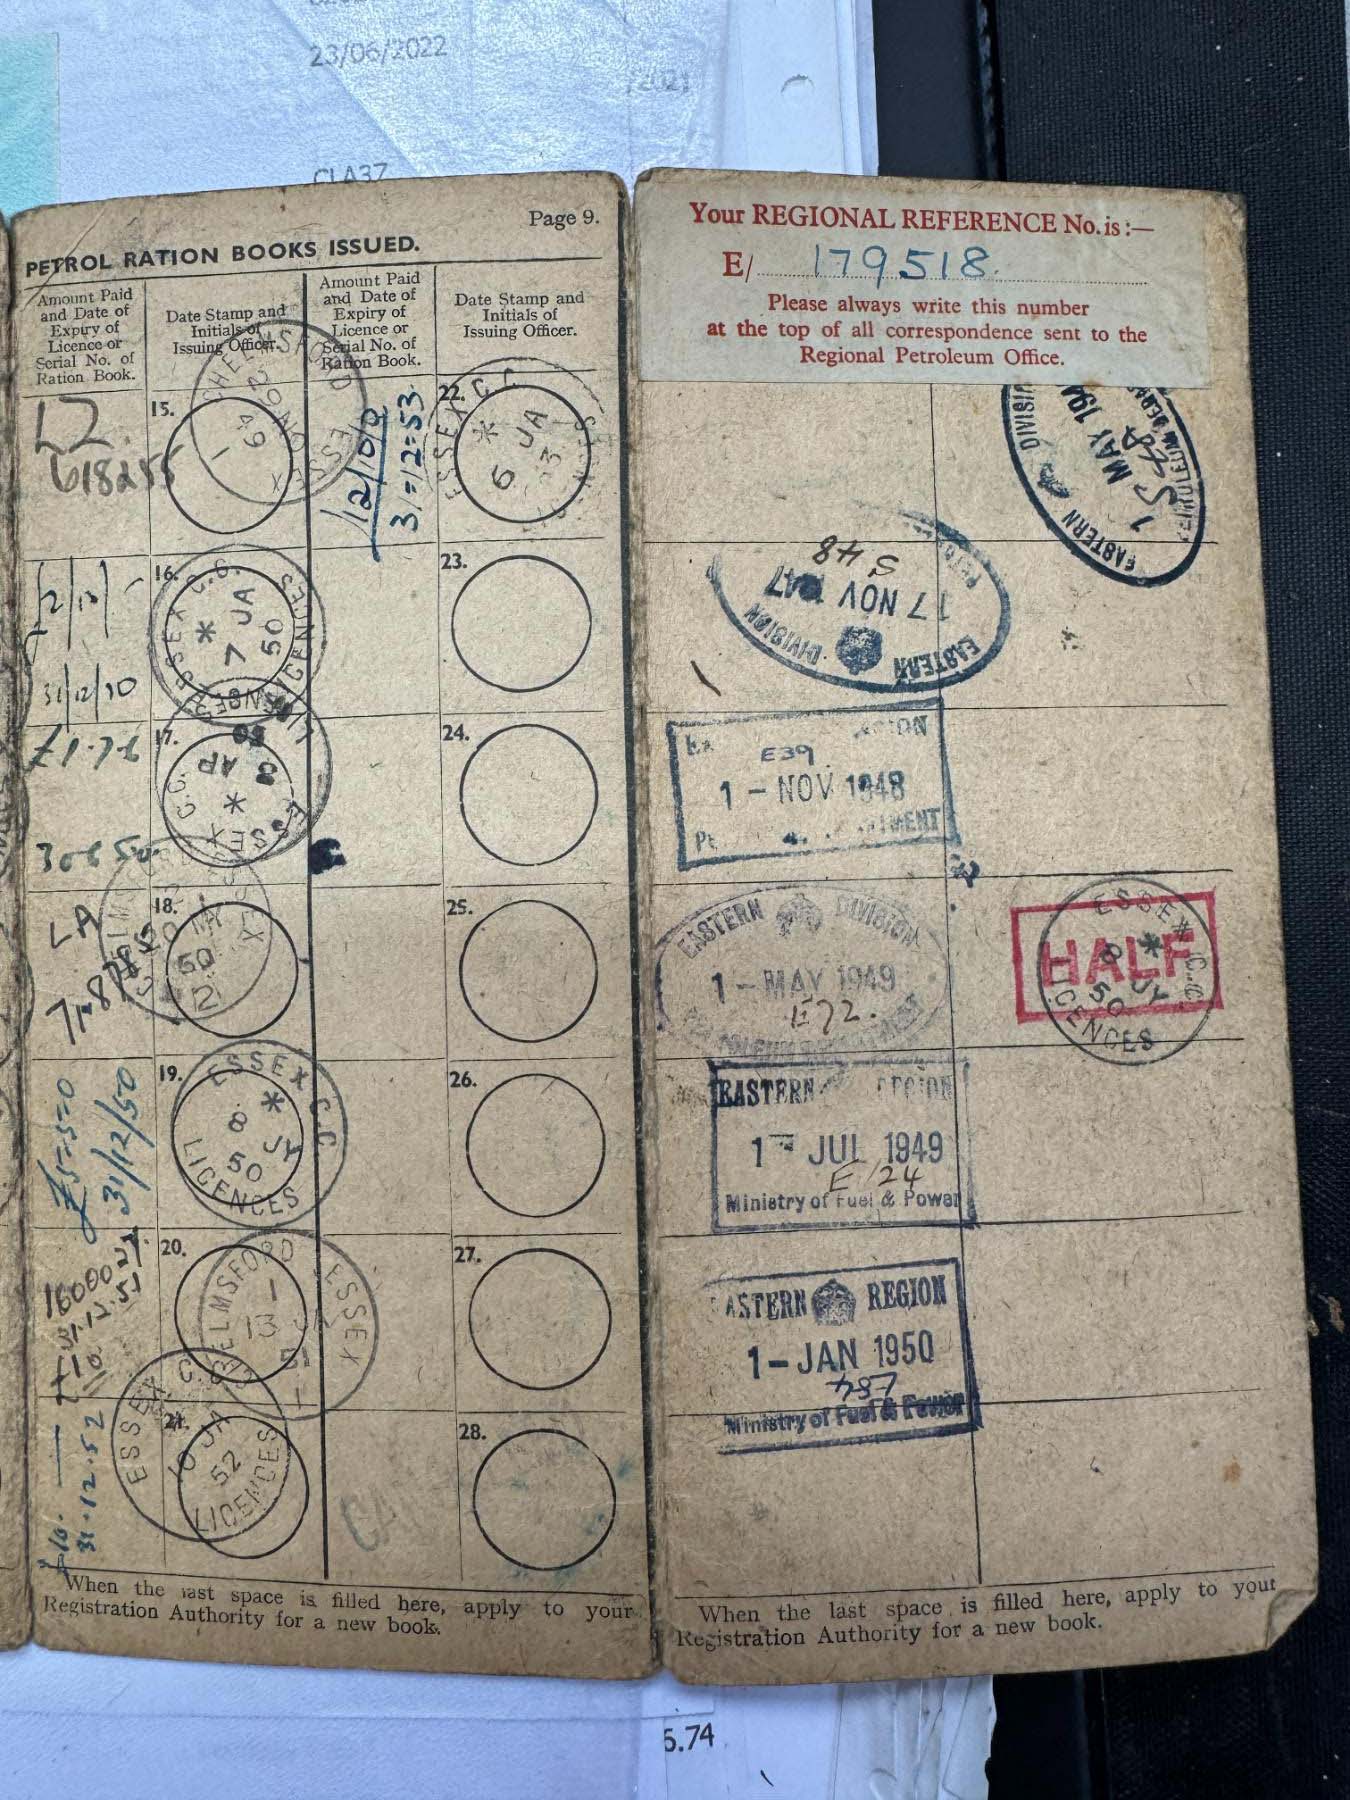 23/06/2022
CLA37
Page 9.
PETROL RATION BOOKS ISSUED.
Amount Paid
and Date of
Expiry of
Licence or
Serial No. of
Ration Book.
Date Stamp and
Initials of
Issuing Officer.
Amount Paid
and Date of
Expiry of
Licence or
Serial No. of
Ration Book.
Date Stamp and
Initials of
Issuing Officer.
15.
CHELMSFORD
ESSEX
618255
12/10/0
31=12=53
22.
ESSEX C.C.
6 JA
53
16.
ESSEX C.C.
7 JA
50
LICENCES
31/12/50
23.
17.
£1-7-6
ESSEX C.C.
AP
50
30 6 50
24.
18.
LA
CHELMSFORD
ESSEX
50
25.
19.
ESSEX C.C
8 JY
50
LICENCES
£5=5=0
31/12/50
26.
20.
CHELMSFORD
ESSEX
1
13
51
31.12.51
27.
21.
ESSEX C.C.
10 JA
52
LICENCES
£10.
31.12.52
28.
When the last space is filled here, apply to your
Registration Authority for a new book.
Your REGIONAL REFERENCE No. is :—
E/ 179518.
Please always write this number
at the top of all correspondence sent to the
Regional Petroleum Office.
EASTERN DIVISION
MAY
EASTERN DIVISION
17 NOV 1947
E39
1 - NOV 1948
EASTERN DIVISION
1 - MAY 1949
E72.
ESSEX C.C.
8 JY
50
LICENCES
HALF
EASTERN REGION
1 - JUL 1949
E/24
Ministry of Fuel & Power
EASTERN REGION
1 - JAN 1950
Ministry of Fuel & Power
When the last space is filled here, apply to your
Registration Authority for a new book.
5.74